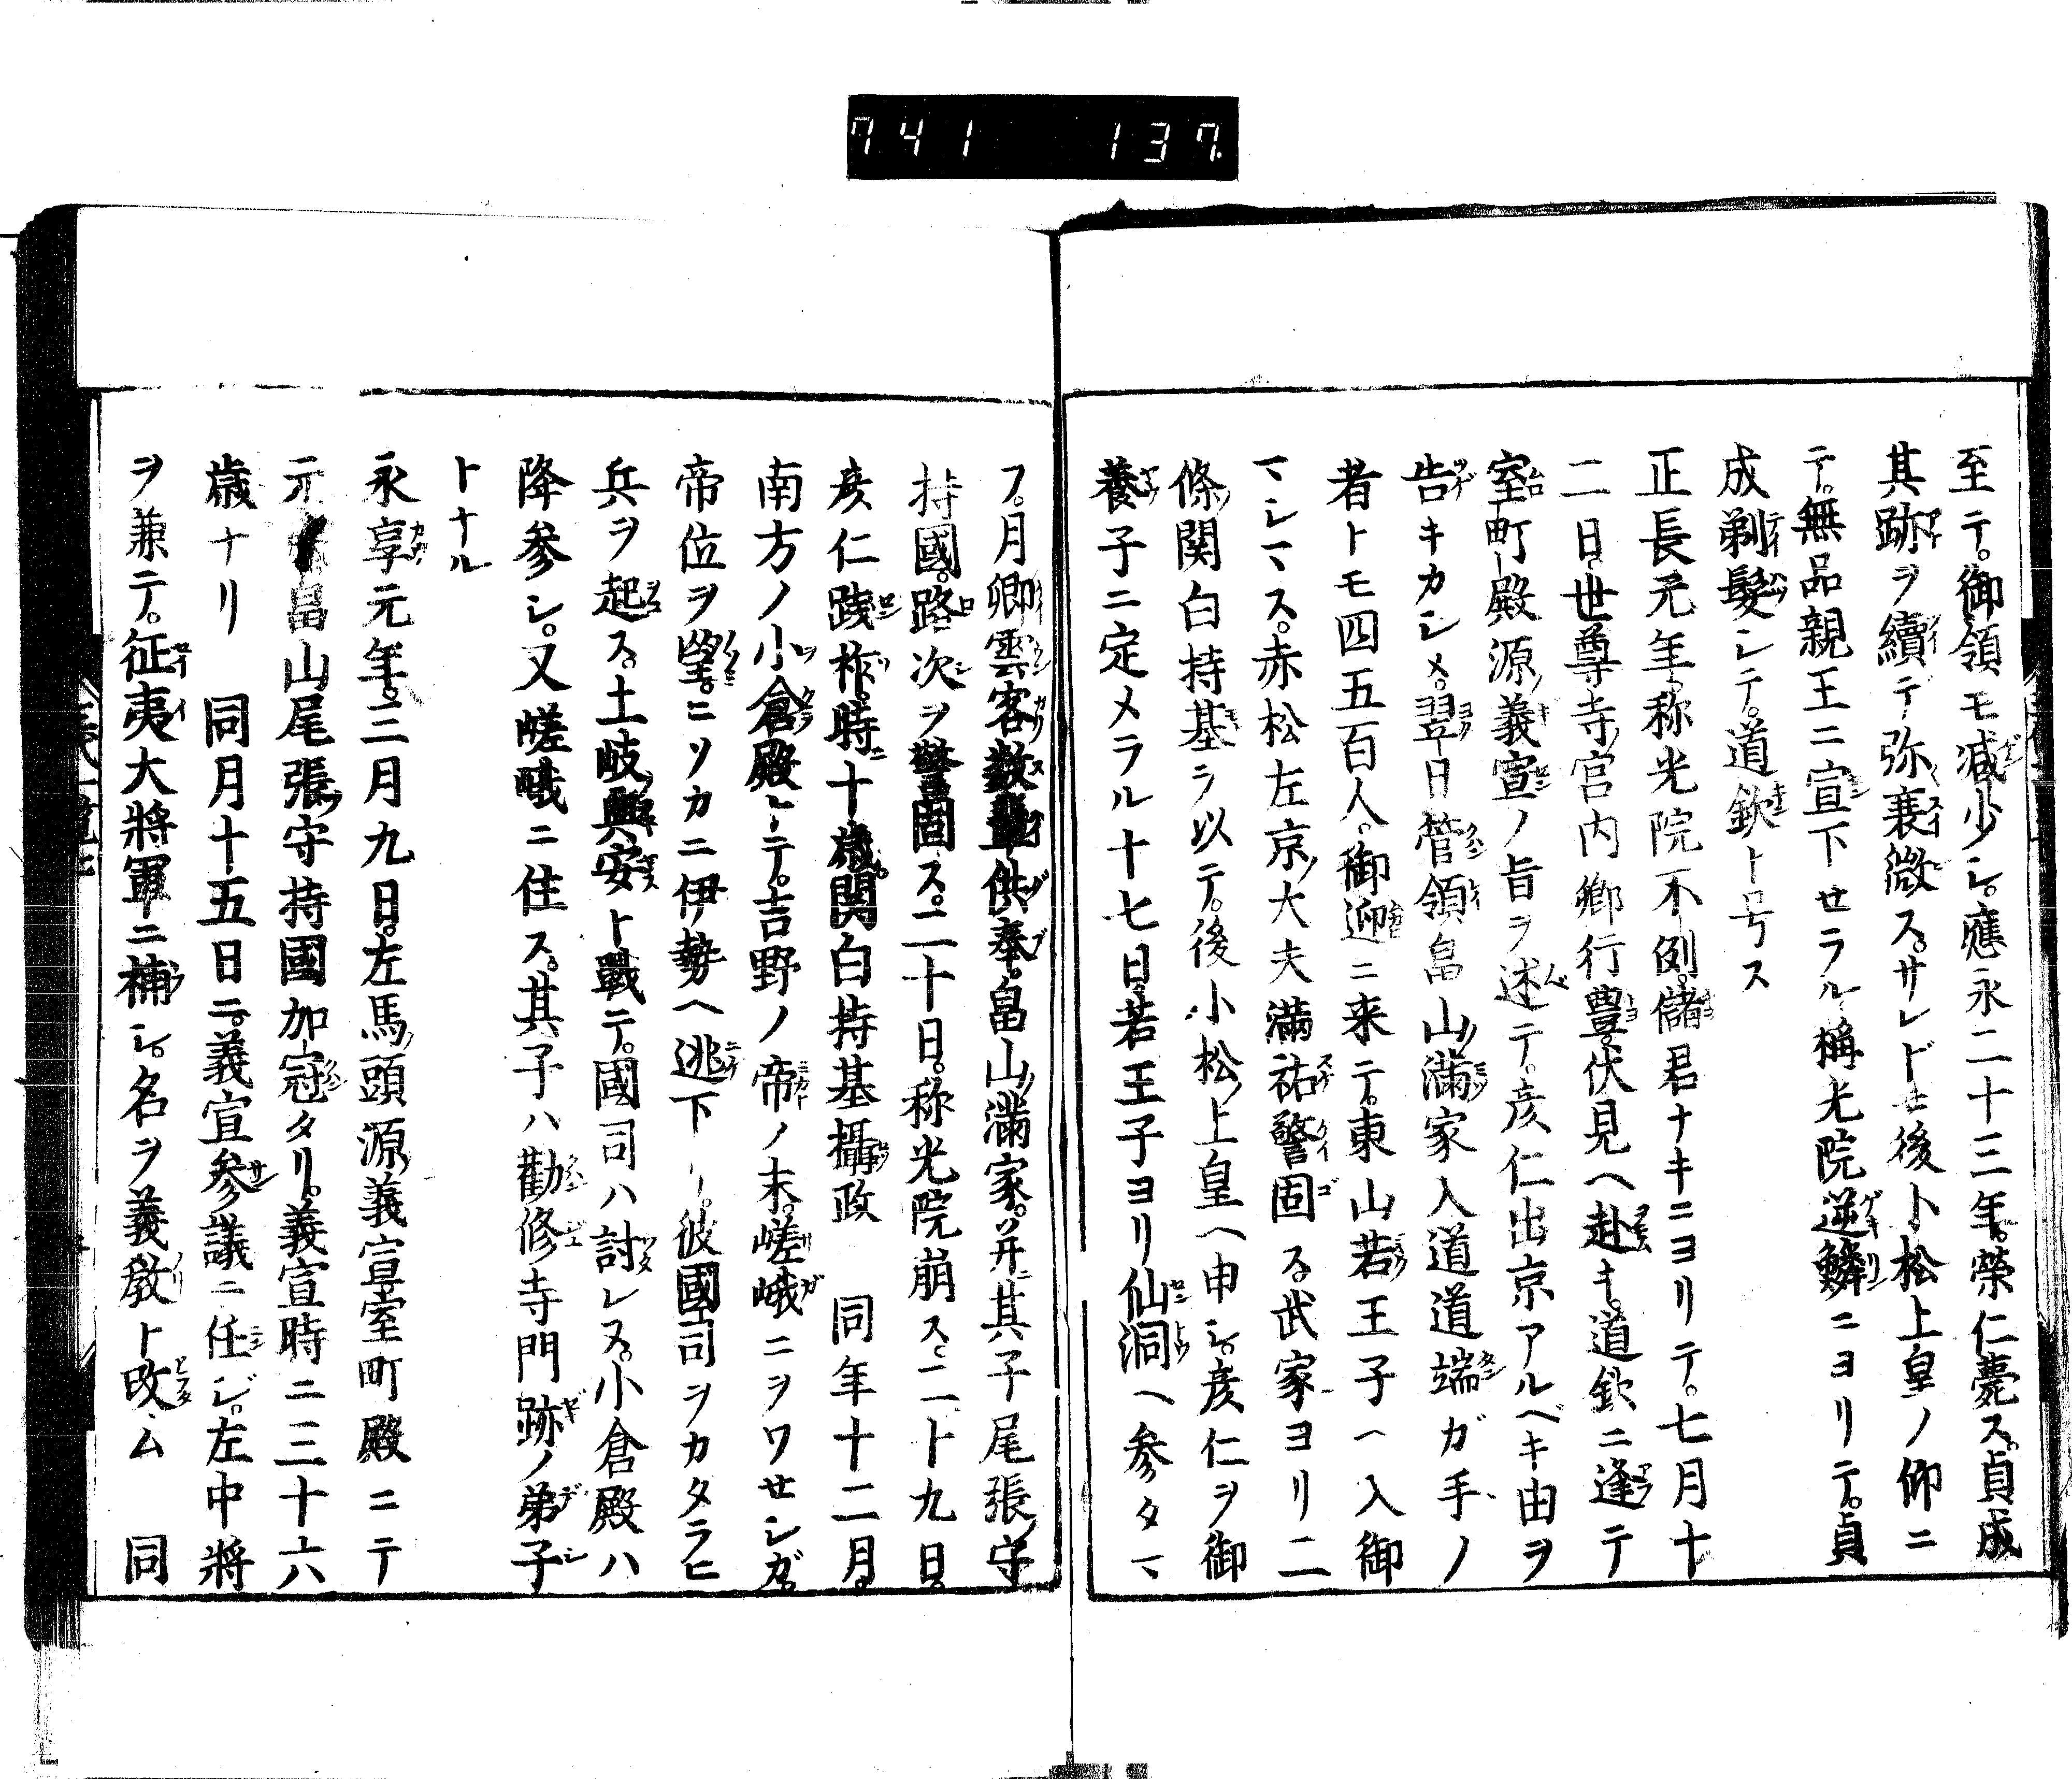 741 137
至テ。御領モ減少シ。應永二十三年。榮仁薨ス。貞成
其跡ヲ續テ弥衰微ス。サレドモ後小松上皇ノ仰ニ
テ。無品親王ニ宣下セラル稱光院逆鱗ニヨリテ。貞
成剃髮シテ。道欽ト号ス
正長元年。称光院不例。儲君ナキニヨリテ。七月十
二日。世尊寺宮内卿行豊。伏見ヘ赴キ。道欽ニ逢テ
室町殿源義宣ノ旨ヲ述テ。彦仁出京アルベキ由ヲ
告キカシメ。翌日管領畠山滿家入道道端ガ手ノ
者トモ四五百人。御迎ニ来テ。東山若王子ヘ入御
マシマス。赤松左京大夫滿祐警固ス。武家ヨリ二
條関白持基ヲ以テ。後小松上皇ヘ申シ。彦仁ヲ御
養子ニ定メラル十七日。若王子ヨリ仙洞ヘ参タマ
フ。月卿雲客数輩供奉。畠山滿家。并其子尾張守
持國。路次ヲ警固ス。二十日。称光院崩ス。二十九日。
彦仁践祚。時十歳。関白持基攝政 同年十二月。
南方ノ小倉殿トテ。吉野ノ帝ノ末。嵯峨ニヲワセシガ。
帝位ヲ望。ニソカニ伊勢ヘ逃下リ。彼國司ヲカタラヒ
兵ヲ起ス。土岐與安ト戰テ。國司ハ討レヌ。小倉殿ハ
降参シ。又嵯峨ニ住ス。其子ハ勸修寺門跡ノ弟子
トナル
永享元年。三月九日。左馬頭源義宣室町殿ニテ
元畠山尾張守持國加冠タリ。義宣時ニ三十六
歳ナリ 同月十五日ニ。義宣参議ニ任ジ。左中將
ヲ兼テ。征夷大將軍ニ補シ。名ヲ義教ト改ム 同